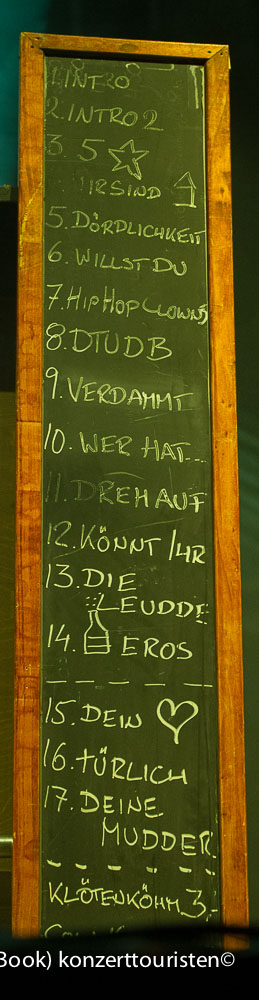 1. INTRO
2. INTRO 2
3. 5
IRSIND
5. DÖRDLICHKEIT
6. WILLST DU
7. HIP HOP CLOWNS
8. DTUDB
9. VERDAMMT
10. WER HAT...
11. DREH AUF
12. KÖNNT IHR
13. DIE
LEUDDE
14. EROS
15. DEIN
16. TÜRLICH
17. DEINE
MUDDER
KLÖTENKÖHM 3,-
Book) konzerttouristen©